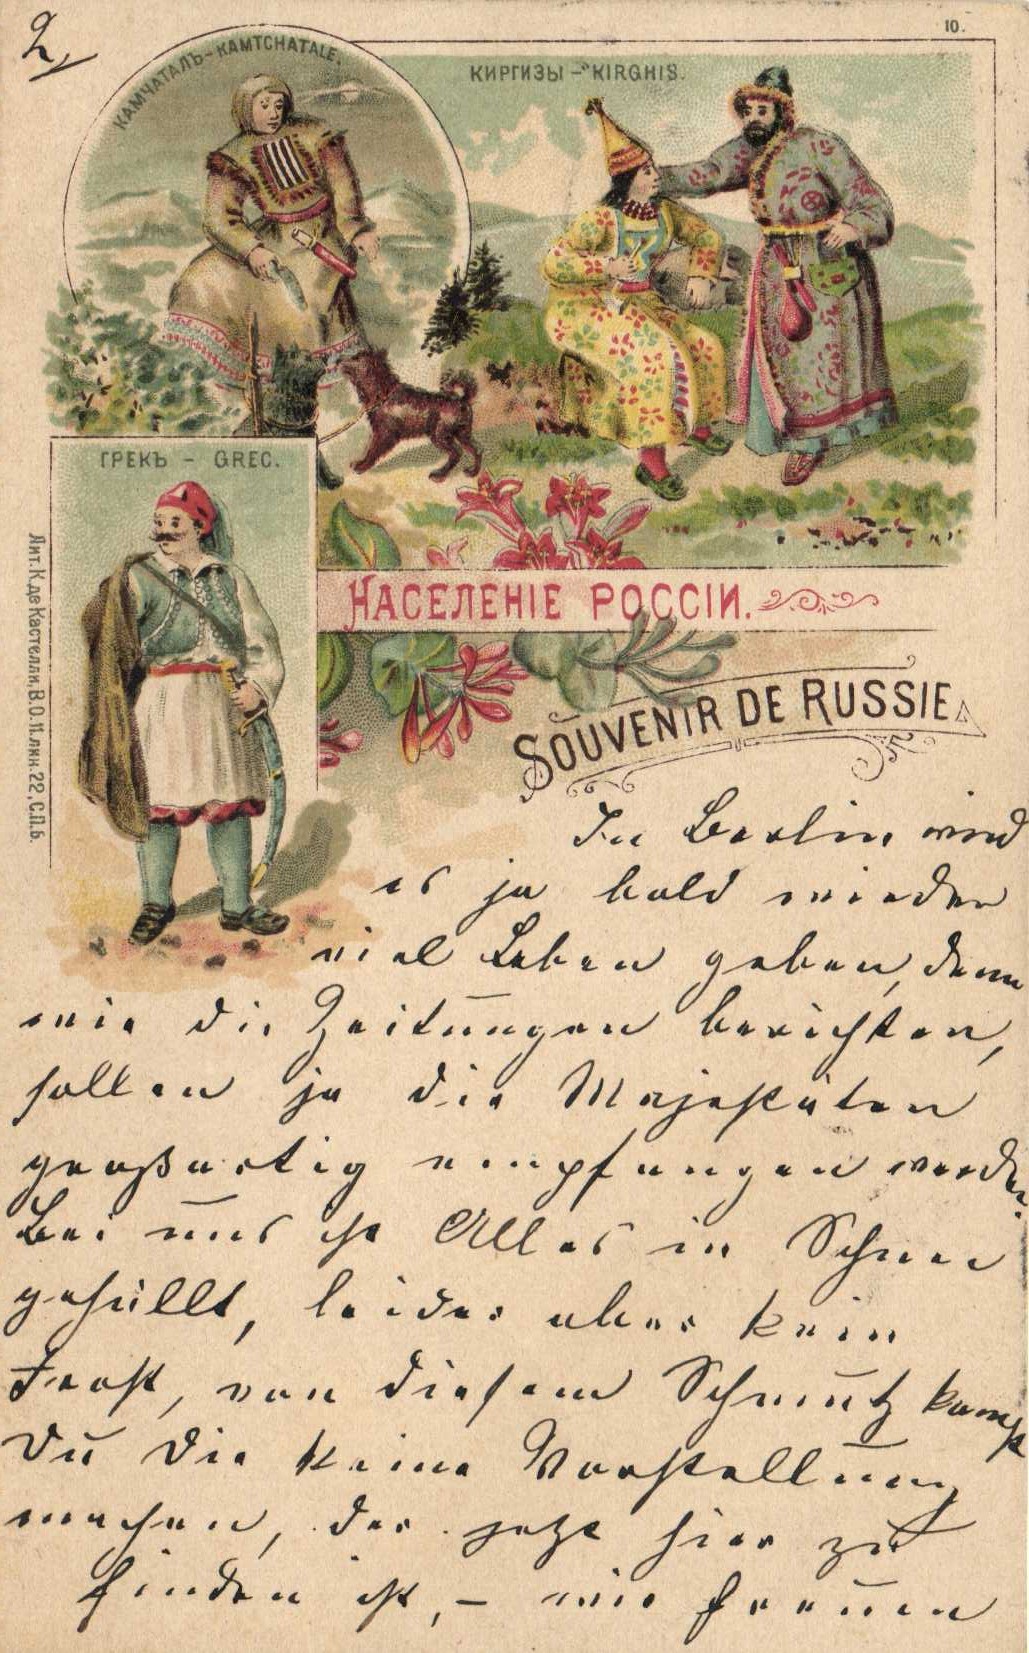 2,
10.
КАМЧАТАЛЪ-КАМTCHATALE.
КИРГИЗЫ - KIRGHIS.
ГРЕКЪ - GREC.
Лит. К. де Кастелли, В.О. 11 лин. 22, С.П.Б.
НАСЕЛЕНІЕ РОССІИ.
SOUVENIR DE RUSSIE
In Berlin wird
es ja bald wieder
viel Leben geben, denn
wie die Zeitungen berichten,
sollen ja die Majestäten
großartig empfangen werden.
Bei uns ist Alles in Schnee
gehüllt, leider aber kein
Frost, von diesem Schmutz kannst
Du Dir keine Vorstellung
machen, der jetzt hier zu
finden ist, - wir freuen